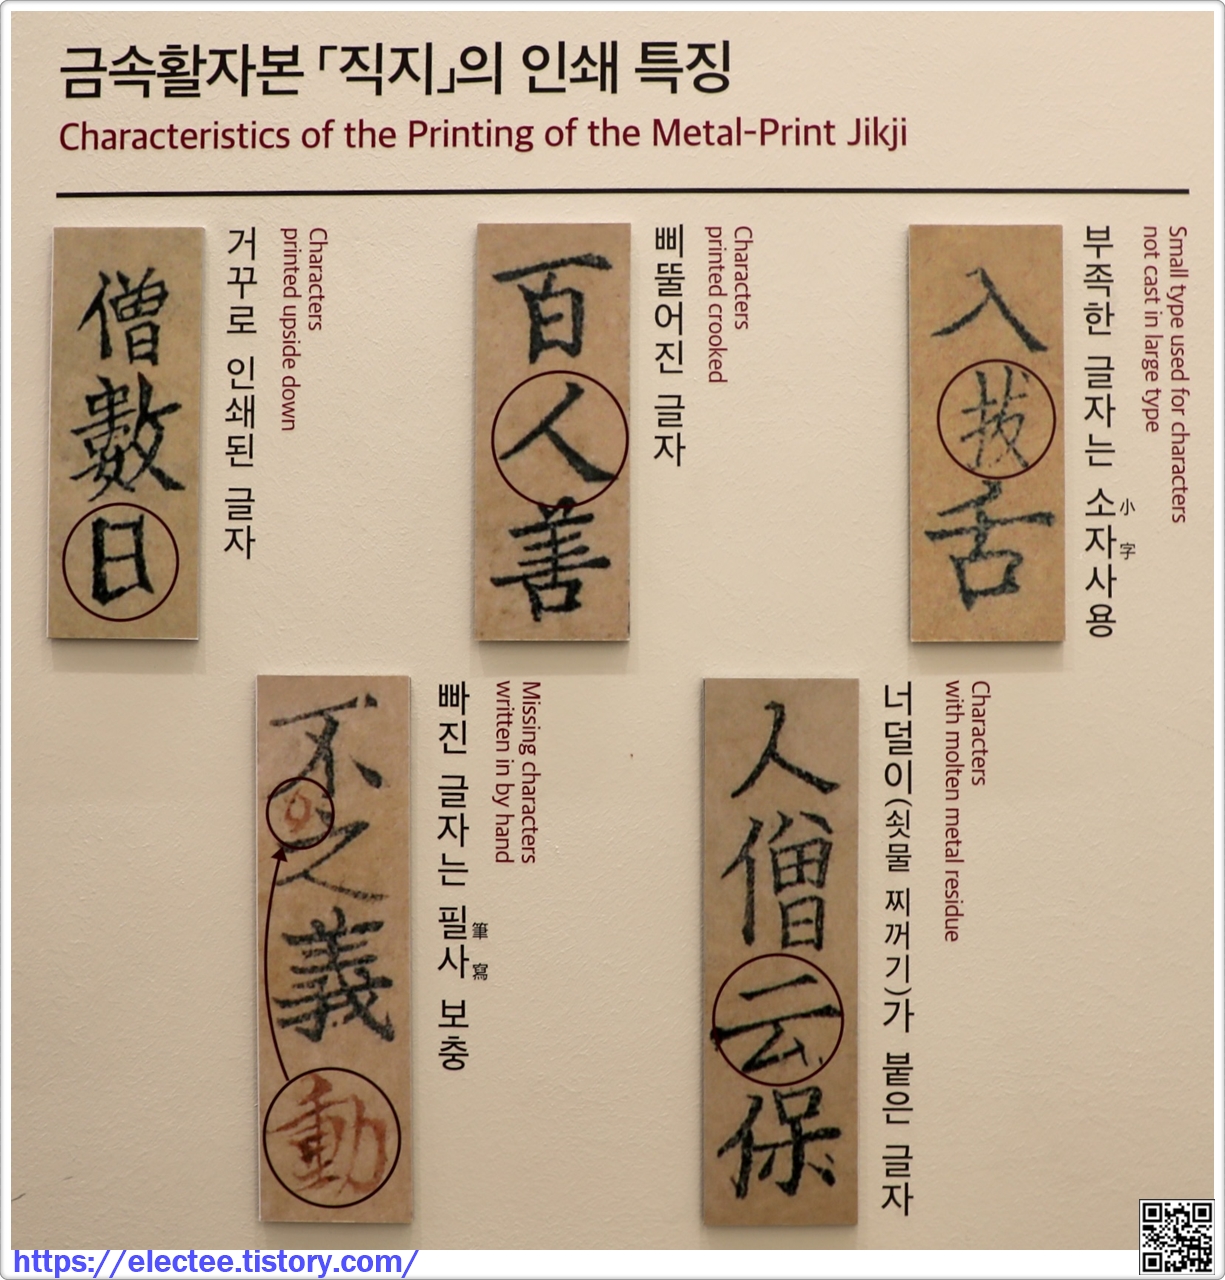 금속활자본 「직지」의 인쇄 특징
Characteristics of the Printing of the Metal-Print Jikji
僧數日
거꾸로 인쇄된 글자
Characters
printed upside down
百人善
삐뚤어진 글자
Characters
printed crooked
入拔舌
부족한 글자는 소자사용
小字
Small type used for characters
not cast in large type
不之義
動
빠진 글자는 필사 보충
筆寫
Missing characters
written in by hand
人僧云保
너덜이(쇳물 찌꺼기)가 붙은 글자
Characters
with molten metal residue
https://electee.tistory.com/